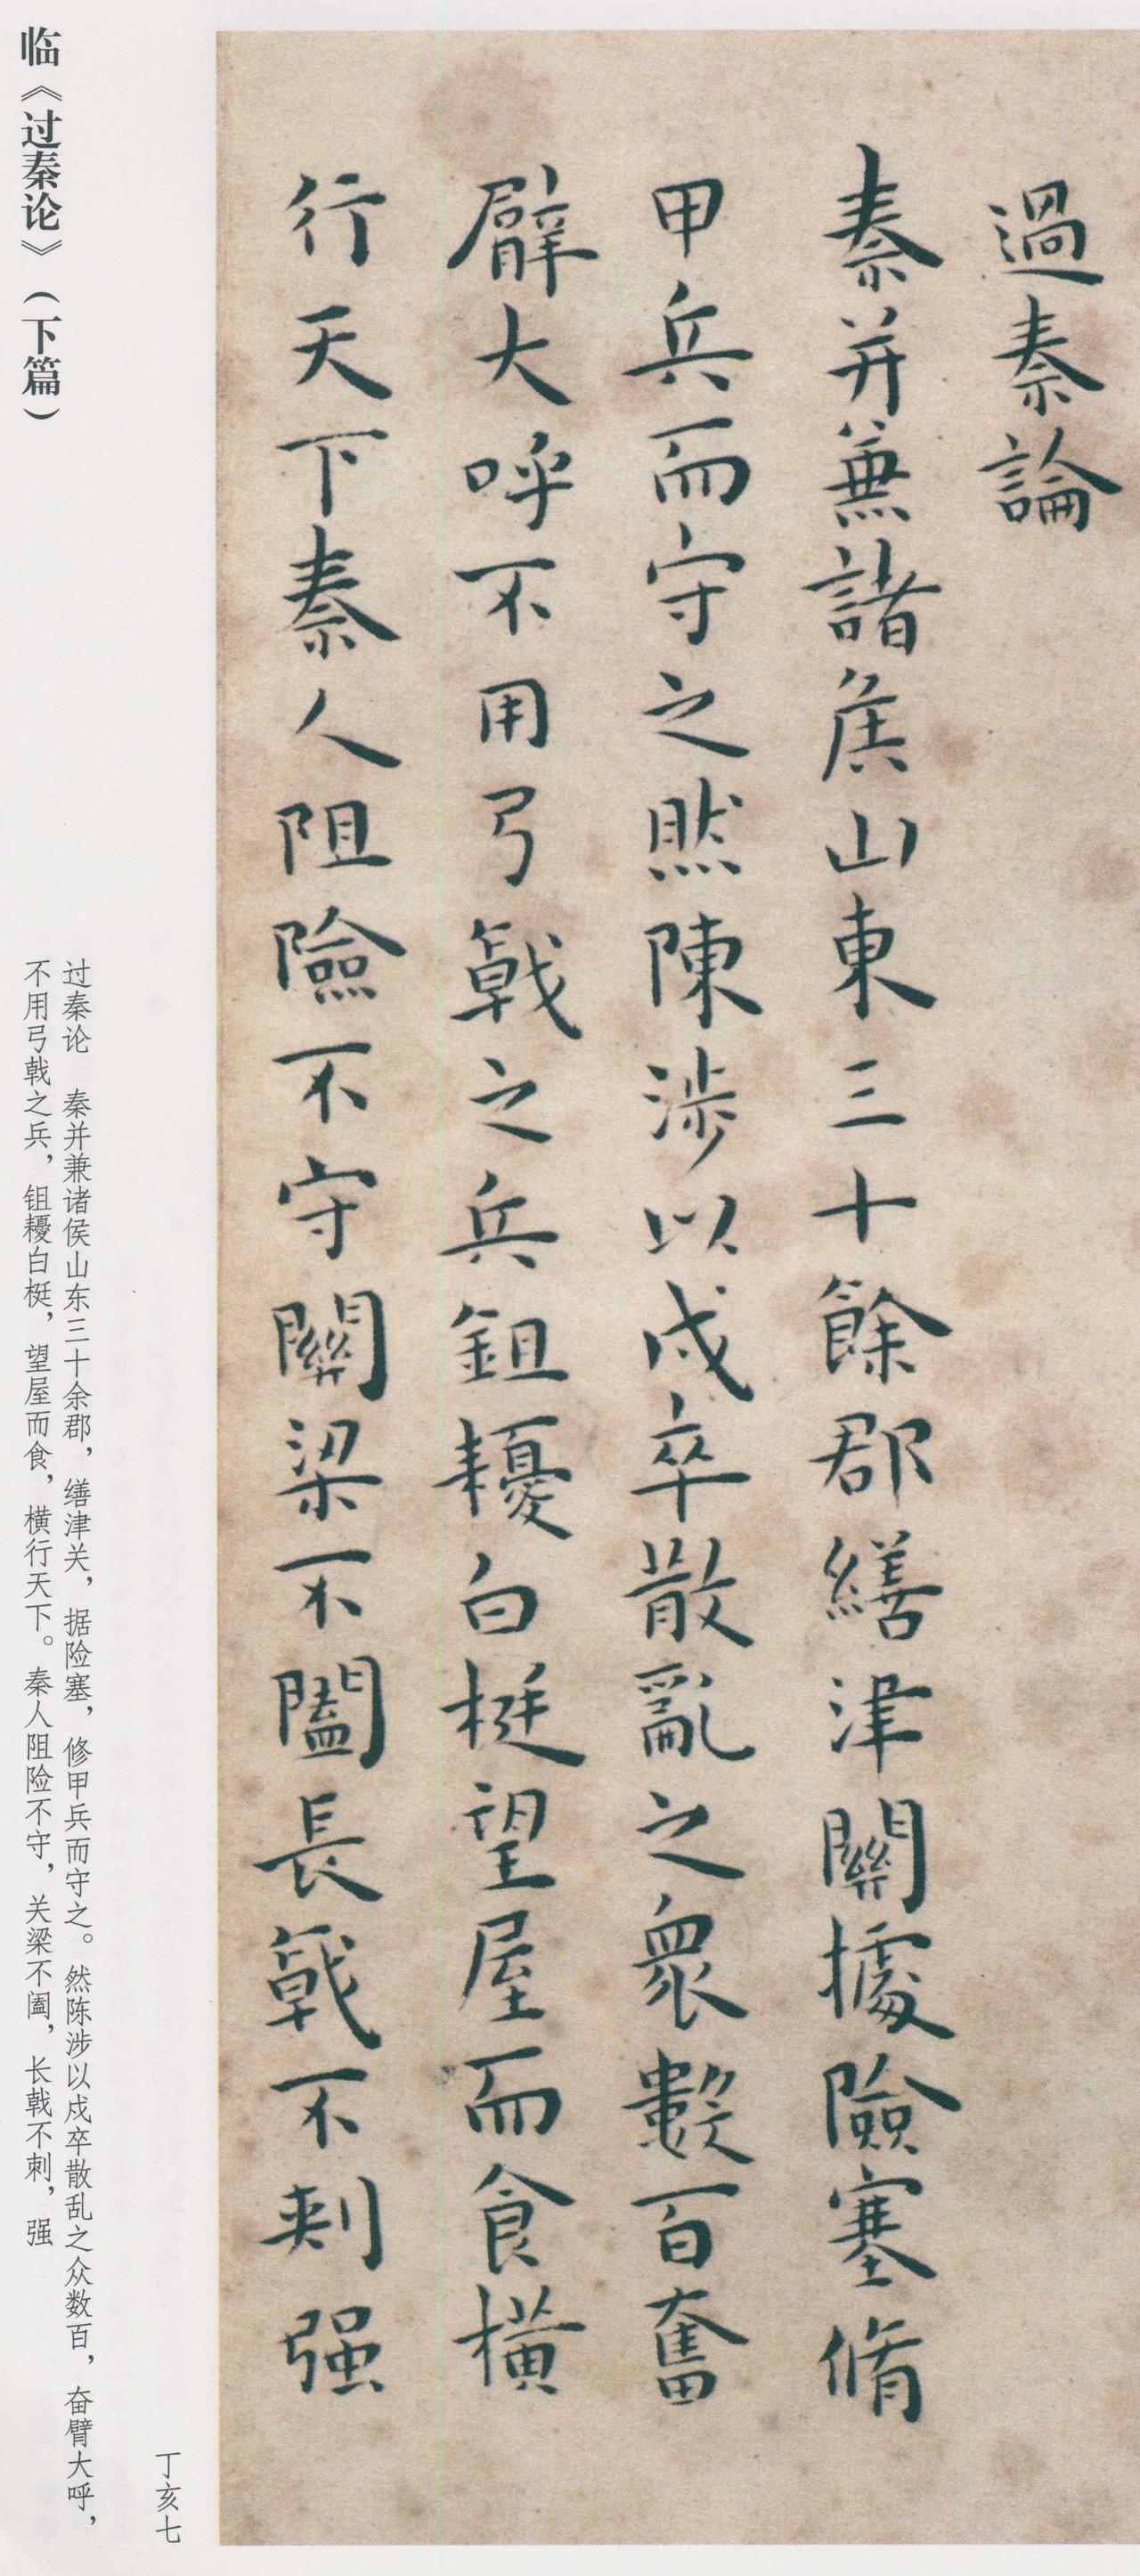 過秦論
秦并兼諸侯山東三十餘郡繕津關據險塞脩
甲兵而守之然陳涉以戍卒散亂之眾數百奮
臂大呼不用弓戟之兵鉏耰白梃望屋而食橫
行天下秦人阻險不守關梁不闔長戟不刺强
临《过秦论》（下篇）
过秦论　秦并兼诸侯山东三十余郡，缮津关，据险塞，修甲兵而守之。然陈涉以戍卒散乱之众数百，奋臂大呼，
不用弓戟之兵，钼耰白梃，望屋而食，横行天下。秦人阻险不守，关梁不阖，长戟不刺，强
丁亥七